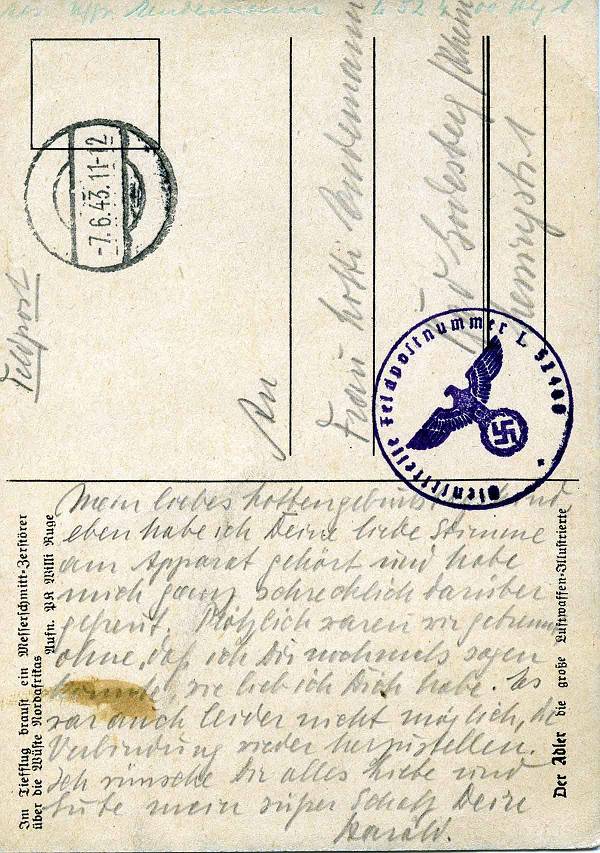 -7.6.43.11-12
Feldpost
An
Frau Lotti
Bad Godesberg/Rhein
Dienststelle Feldpostnummer L 52400
Im Tiefflug braust ein Messerschmitt-Zerstörer
über die Wüste Nordafrikas
Aufn. PK Willi Ruge
Mein liebes
eben habe ich Deine liebe Stimme
am Apparat gehört und habe
mich ganz schrecklich darüber
gefreut. Plötzlich waren wir
ohne, daß ich Dir nochmals sagen
konnte, wie lieb ich Dich habe. Es
war auch leider nicht möglich, die
Verbindung wieder herzustellen.
Ich wünsche Dir alles Liebe und
Gute mein süßer Schatz Deine
Harald.
Der Adler die große Luftwaffen-Illustrierte